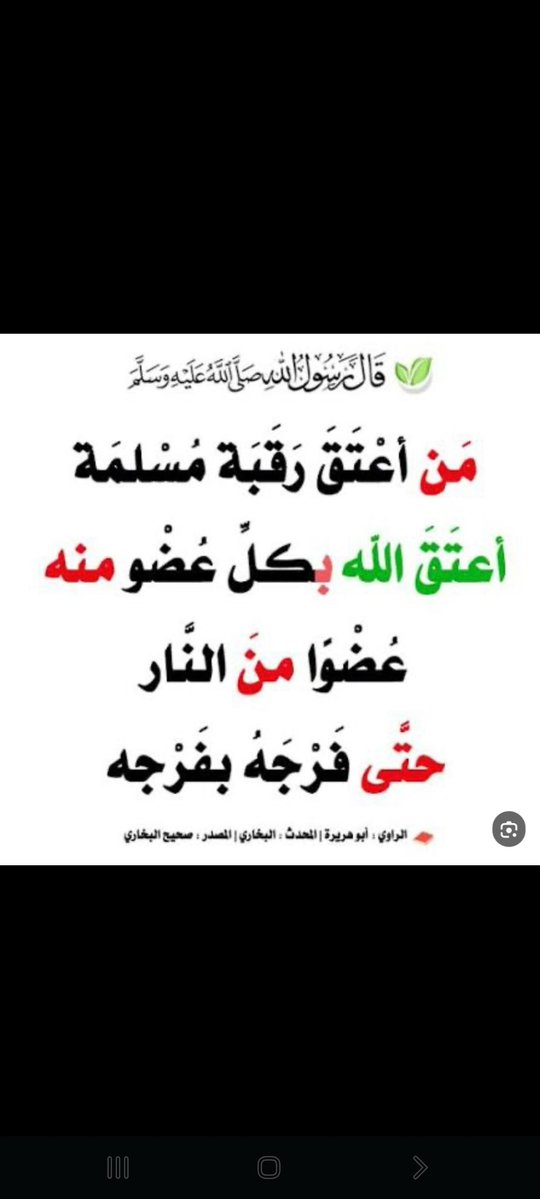 قَالَ رَسُولُ اللهِ صَلَّى اللهُ عَلَيْهِ وَسَلَّمَ
مَن أَعْتَقَ رَقَبَة مُسْلمَة
أعتَقَ اللّه بكلِّ عُضْو منه
عُضْوًا منَ النَّار
حتَّى فَرْجَهُ بفَرْجه
الراوي : أبو هريرة | المحدث : البخاري | المصدر : صحيح البخاري